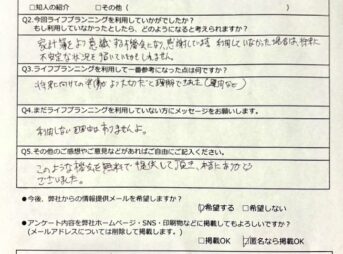 □知人の紹介　□その他（　　　）
Q2.今回ライフプランニングを利用していかがでしたか？
もし利用しなかったとしたら、どのようになると考えられますか？
家計簿をより意識する機会になり、感謝している。利用していなかった場合は、将来に
不安な状況を招いていたかもしれません。
Q3.ライフプランニングを利用して一番参考になった点は何ですか？
将来に向けての
Q4.まだライフプランニングを利用していない方にメッセージをお願いします。
利用しない理由はありませんよ。
Q5.その他のご感想やご意見などがあればご自由にご記入ください。
このような機会を無料で提供して頂き、本当にありがとう
ございました。
● 今後、弊社からの情報提供メールを希望しますか？
☑希望する　□希望しない
● アンケート内容を弊社ホームページ・SNS・印刷物などに掲載してもよろしいですか？
（メールアドレスについては削除して掲載します。）
□掲載OK　☑匿名なら掲載OK